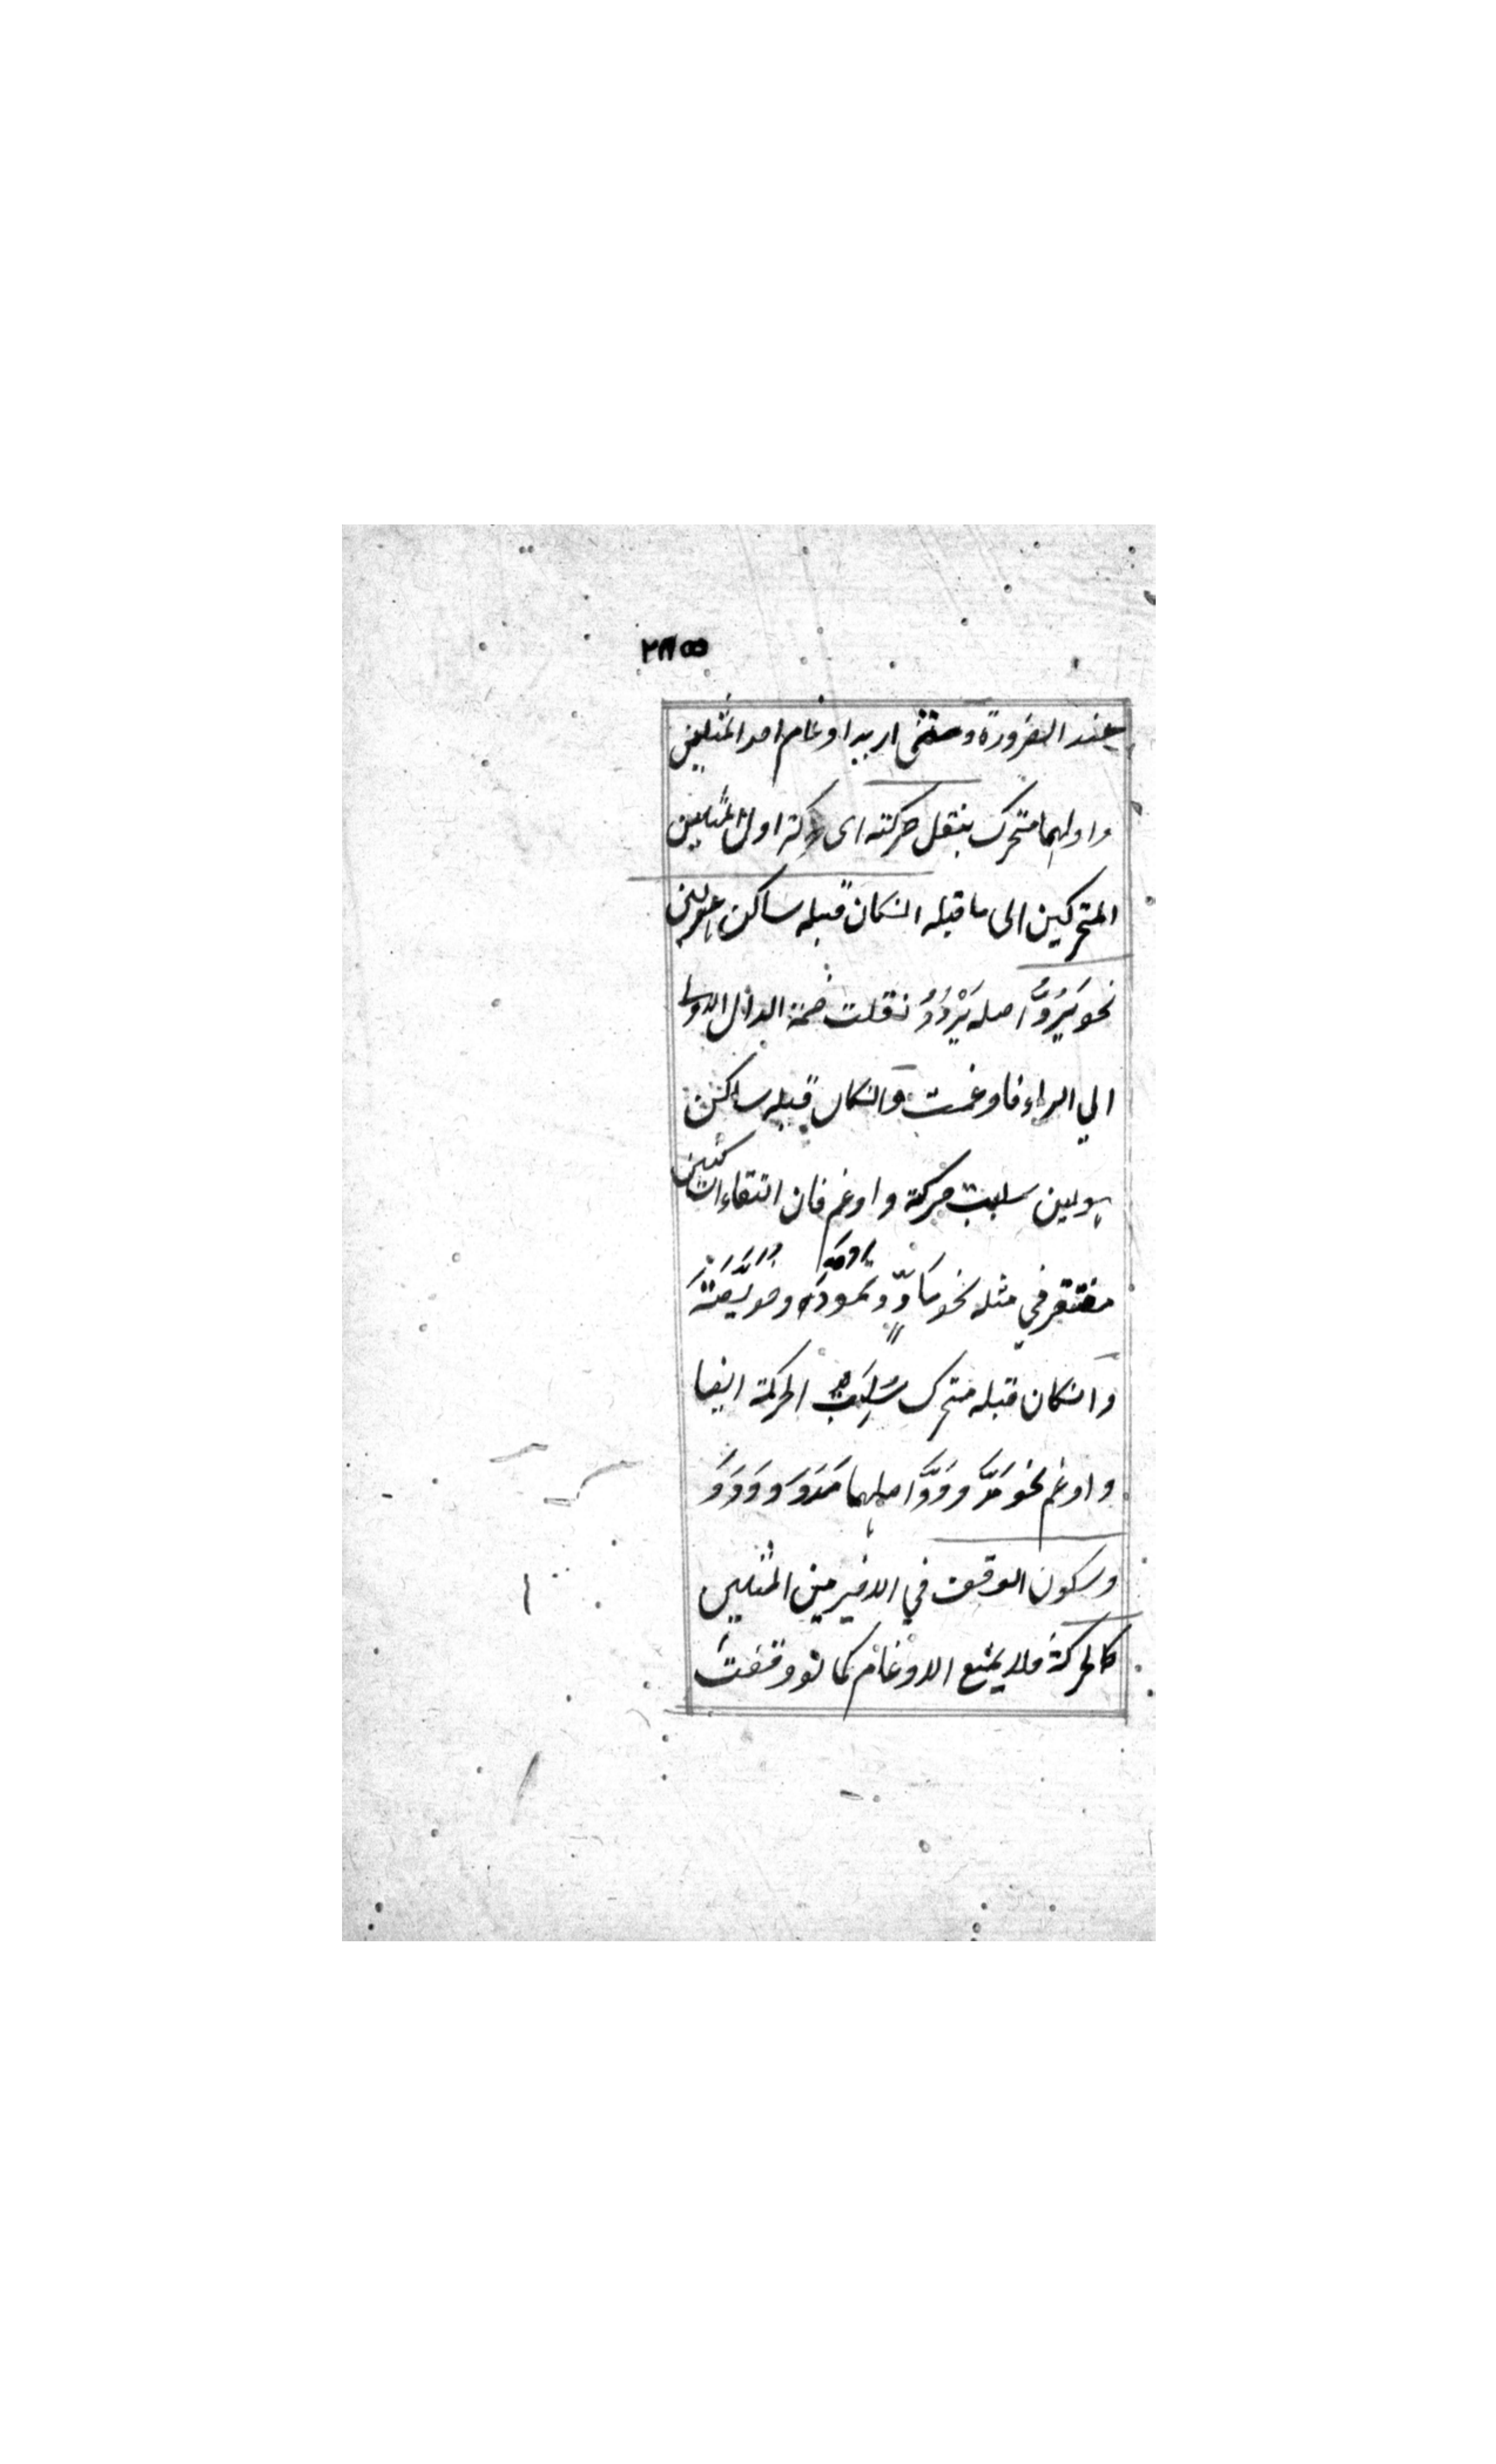 عند الضرورة ومتى اريد ادغام احد المثلين
واولهما متحرك بنقل حركته اى حركة اول المثلين
المتحركين الى ما قبله انكان قبله ساكن غير لين
نحو يَرُدُّ اصله يَرْدُدُ نقلت ضمة الدال الاولى
الي الراء فادغمت وانكان قبله ساكن
هو لين سلبت حركة وادغم فان التقاء الساكنين
مغتفر في مثله نحو مَادّ و تمودّ وخُوَيْصَّةَ
وانكان قبله متحرك سُلِبَت الحركة ايضا
وادغم نحو مَدَّ و وَدَّ اصلهما مَدَدَ و وَدَدَ
وسكون الوقف في الاخير من المثلين
كالحركة فلا يمنع الادغام كما لو وقفتَ